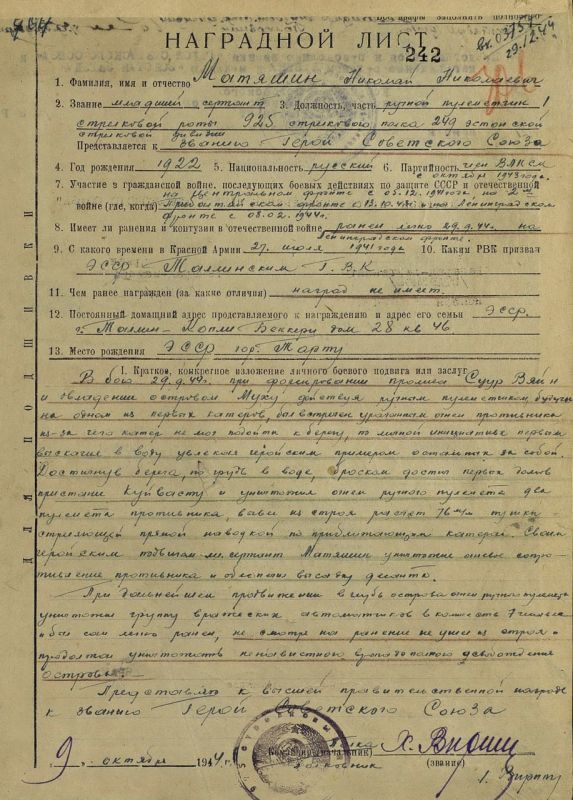 НАГРАДНОЙ ЛИСТ
242
вх. 03757
29.12.44
1. Фамилия, имя и отчество Матяшин Николай Николаевич
2. Звание младший сержант 3. Должность, часть ручной пулеметчик 1
стрелковой роты 925 стрелкового полка 249 эстонской
стрелковой дивизии
Представляется к званию Герой Советского Союза
4. Год рождения 1922 5. Национальность русский 6. Партийность член ВЛКСМ
с октября 1943 года.
7. Участие в гражданской войне, последующих боевых действиях по защите СССР и отечественной
на Центральном фронте с 05.12.1941 года, на 2м
войне (где, когда) Прибалтийском фронте с 13.10.43 г. и на Ленинградском
фронте с 08.02.1944 г.
8. Имеет ли ранения и контузии в отечественной войне ранен легко 29.9.44 г. на
Ленинградском фронте.
9. С какого времени в Красной Армии 27 июля 1941 года 10. Каким РВК призван
ЭССР Таллинским Г.В.К.
11. Чем ранее награжден (за какие отличия) наград не имеет.
12. Постоянный домашний адрес представляемого к награждению и адрес его семьи ЭССР.
г. Таллин-Копли Беккери дом 28 кв 46
13. Место рождения ЭССР гор. Тарту
I. Краткое, конкретное изложение личного боевого подвига или заслуг
В бою 29.9.44 г. при форсировании пролива Суур Вяйн
и овладении островом Муху действуя ручным пулеметчиком, будучи
на одном из первых катеров, был встречен ураганным огнем противника
из-за чего катер не мог подойти к берегу, то личной инициативе первым
выскочив в воду увлек геройским примером остальных за собой.
Достигнув берега, по грудь в воде, броском достиг первых домов
пристани Куйвасту и уничтожил огнем ручного пулемета два
пулемета противника, вывел из строя расчет 76 м/м пушки
стреляющей прямой наводкой по приближающим катерам. Своим
геройским подвигом мл. сержант Матяшин уничтожил огневое сопро-
тивление противника и обеспечил высадку десанта.
При дальнейшем продвижении в глубь острова огнем ручного пулемета
уничтожил группу вражеских автоматчиков в количестве 7 человек
и был сам легко ранен, не смотря на ранение не ушел из строя и
продолжал уничтожать ненавистного врага до полного освобождения
острова.
Представляю к высшей правительственной награде
к званию Герой Советского Союза
Командир (начальник)
полковник
(звание)
9 октября 1944 г.
ДЛЯ ПОДШИВКИ